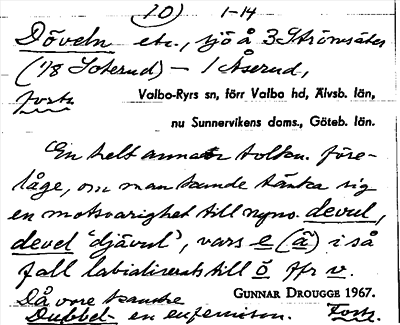 (10) 1-14
Döveln etc., sjö å 3 Strömsäter
(1/8 Soterud) — 1 Åserud,
forts.
Valbo-Ryrs sn, förr Valbo hd, Älvsb. län,
nu Sunnervikens doms., Göteb. län.
En helt annan tolkn. före-
låge, om man kunde tänka sig
en motsvarighet till nyno. devul,
devel 'djävul', vars e (ä) i så
fall labialiserats till ö ffr v.
Då vore kanske GUNNAR DROUGGE 1967.
Dubbel- en eufemism. Forts.